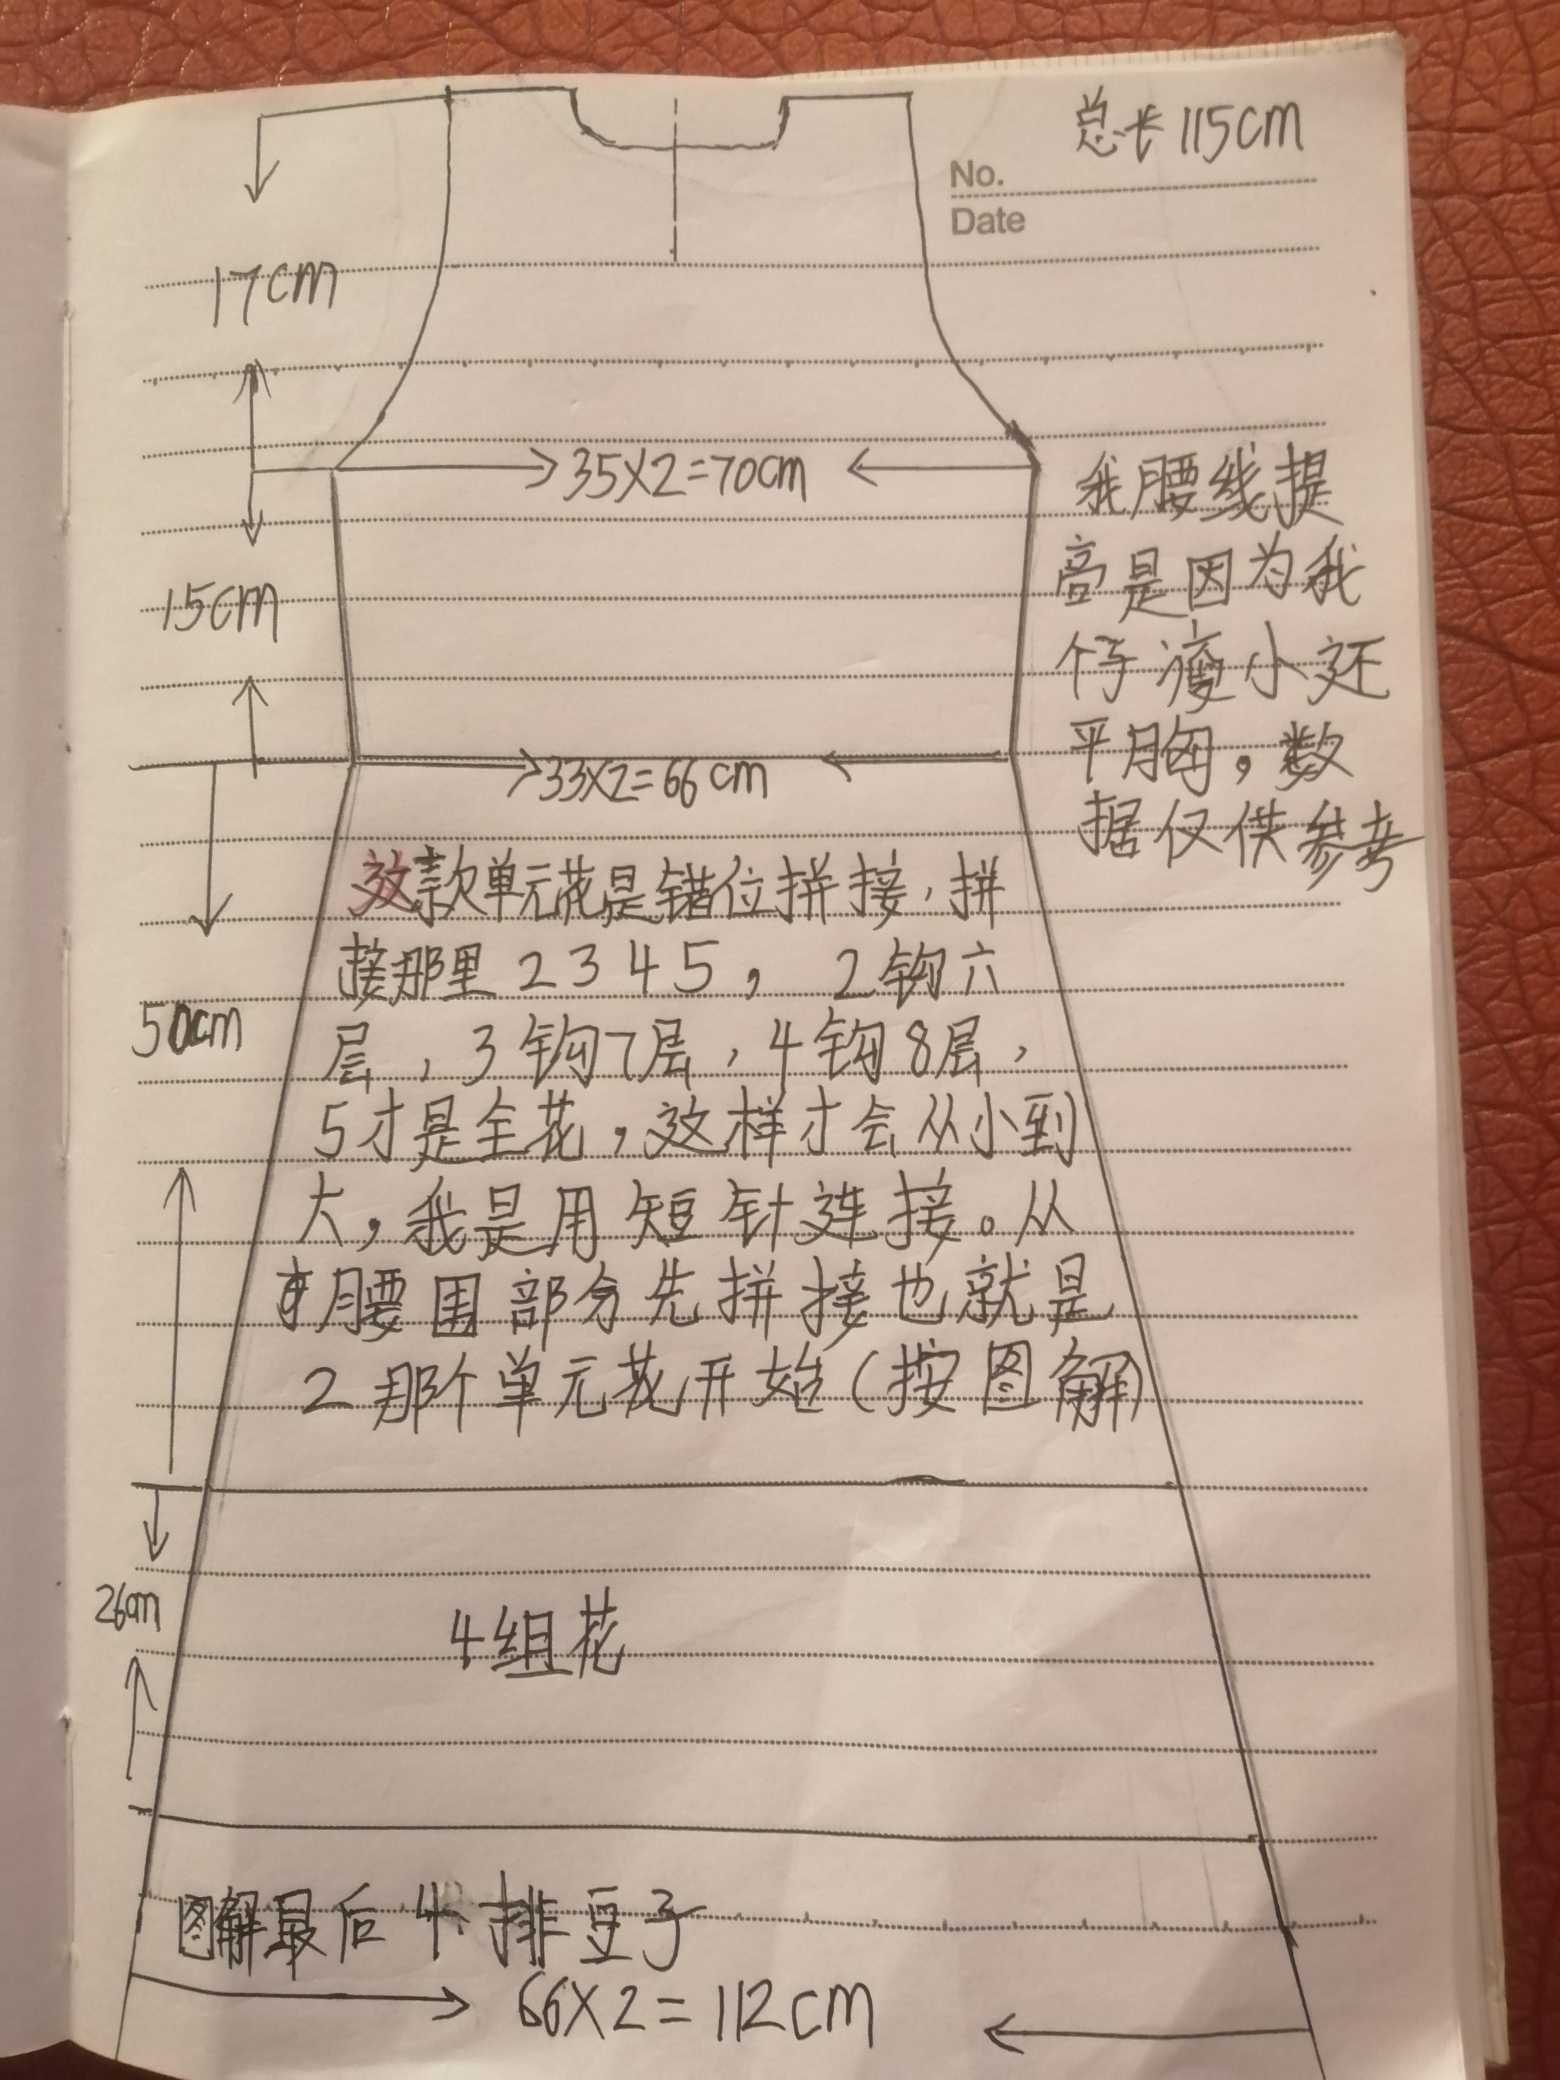 总长115cm
No.
Date
17cm
35X2=70cm
我腰线提
高是因为我
个子瘦小还
平胸，数
据仅供参考
15cm
33X2=66cm
这款单元花是错位拼接，拼
接那里2345，2钩六
层，3钩7层，4钩8层，
5才是全花，这样才会从小到
大，我是用短针连接。从
腰围部分先拼接也就是
2那个单元花开始（按图解）
50cm
26cm
4组花
图解最后4排豆子
66X2=112cm